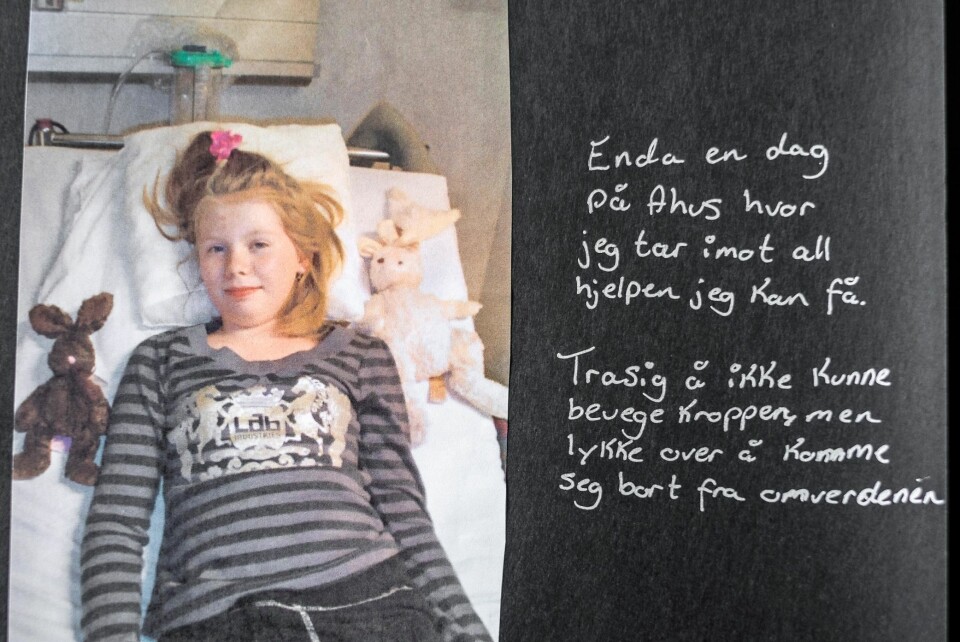 Enda en dag
på Ahus hvor
jeg tar imot all
hjelpen jeg kan få.
Trasig å ikke kunne
bevege kroppen, men
lykke over å komme
seg bort fra omverdenen
Lab
INDUSTRIES